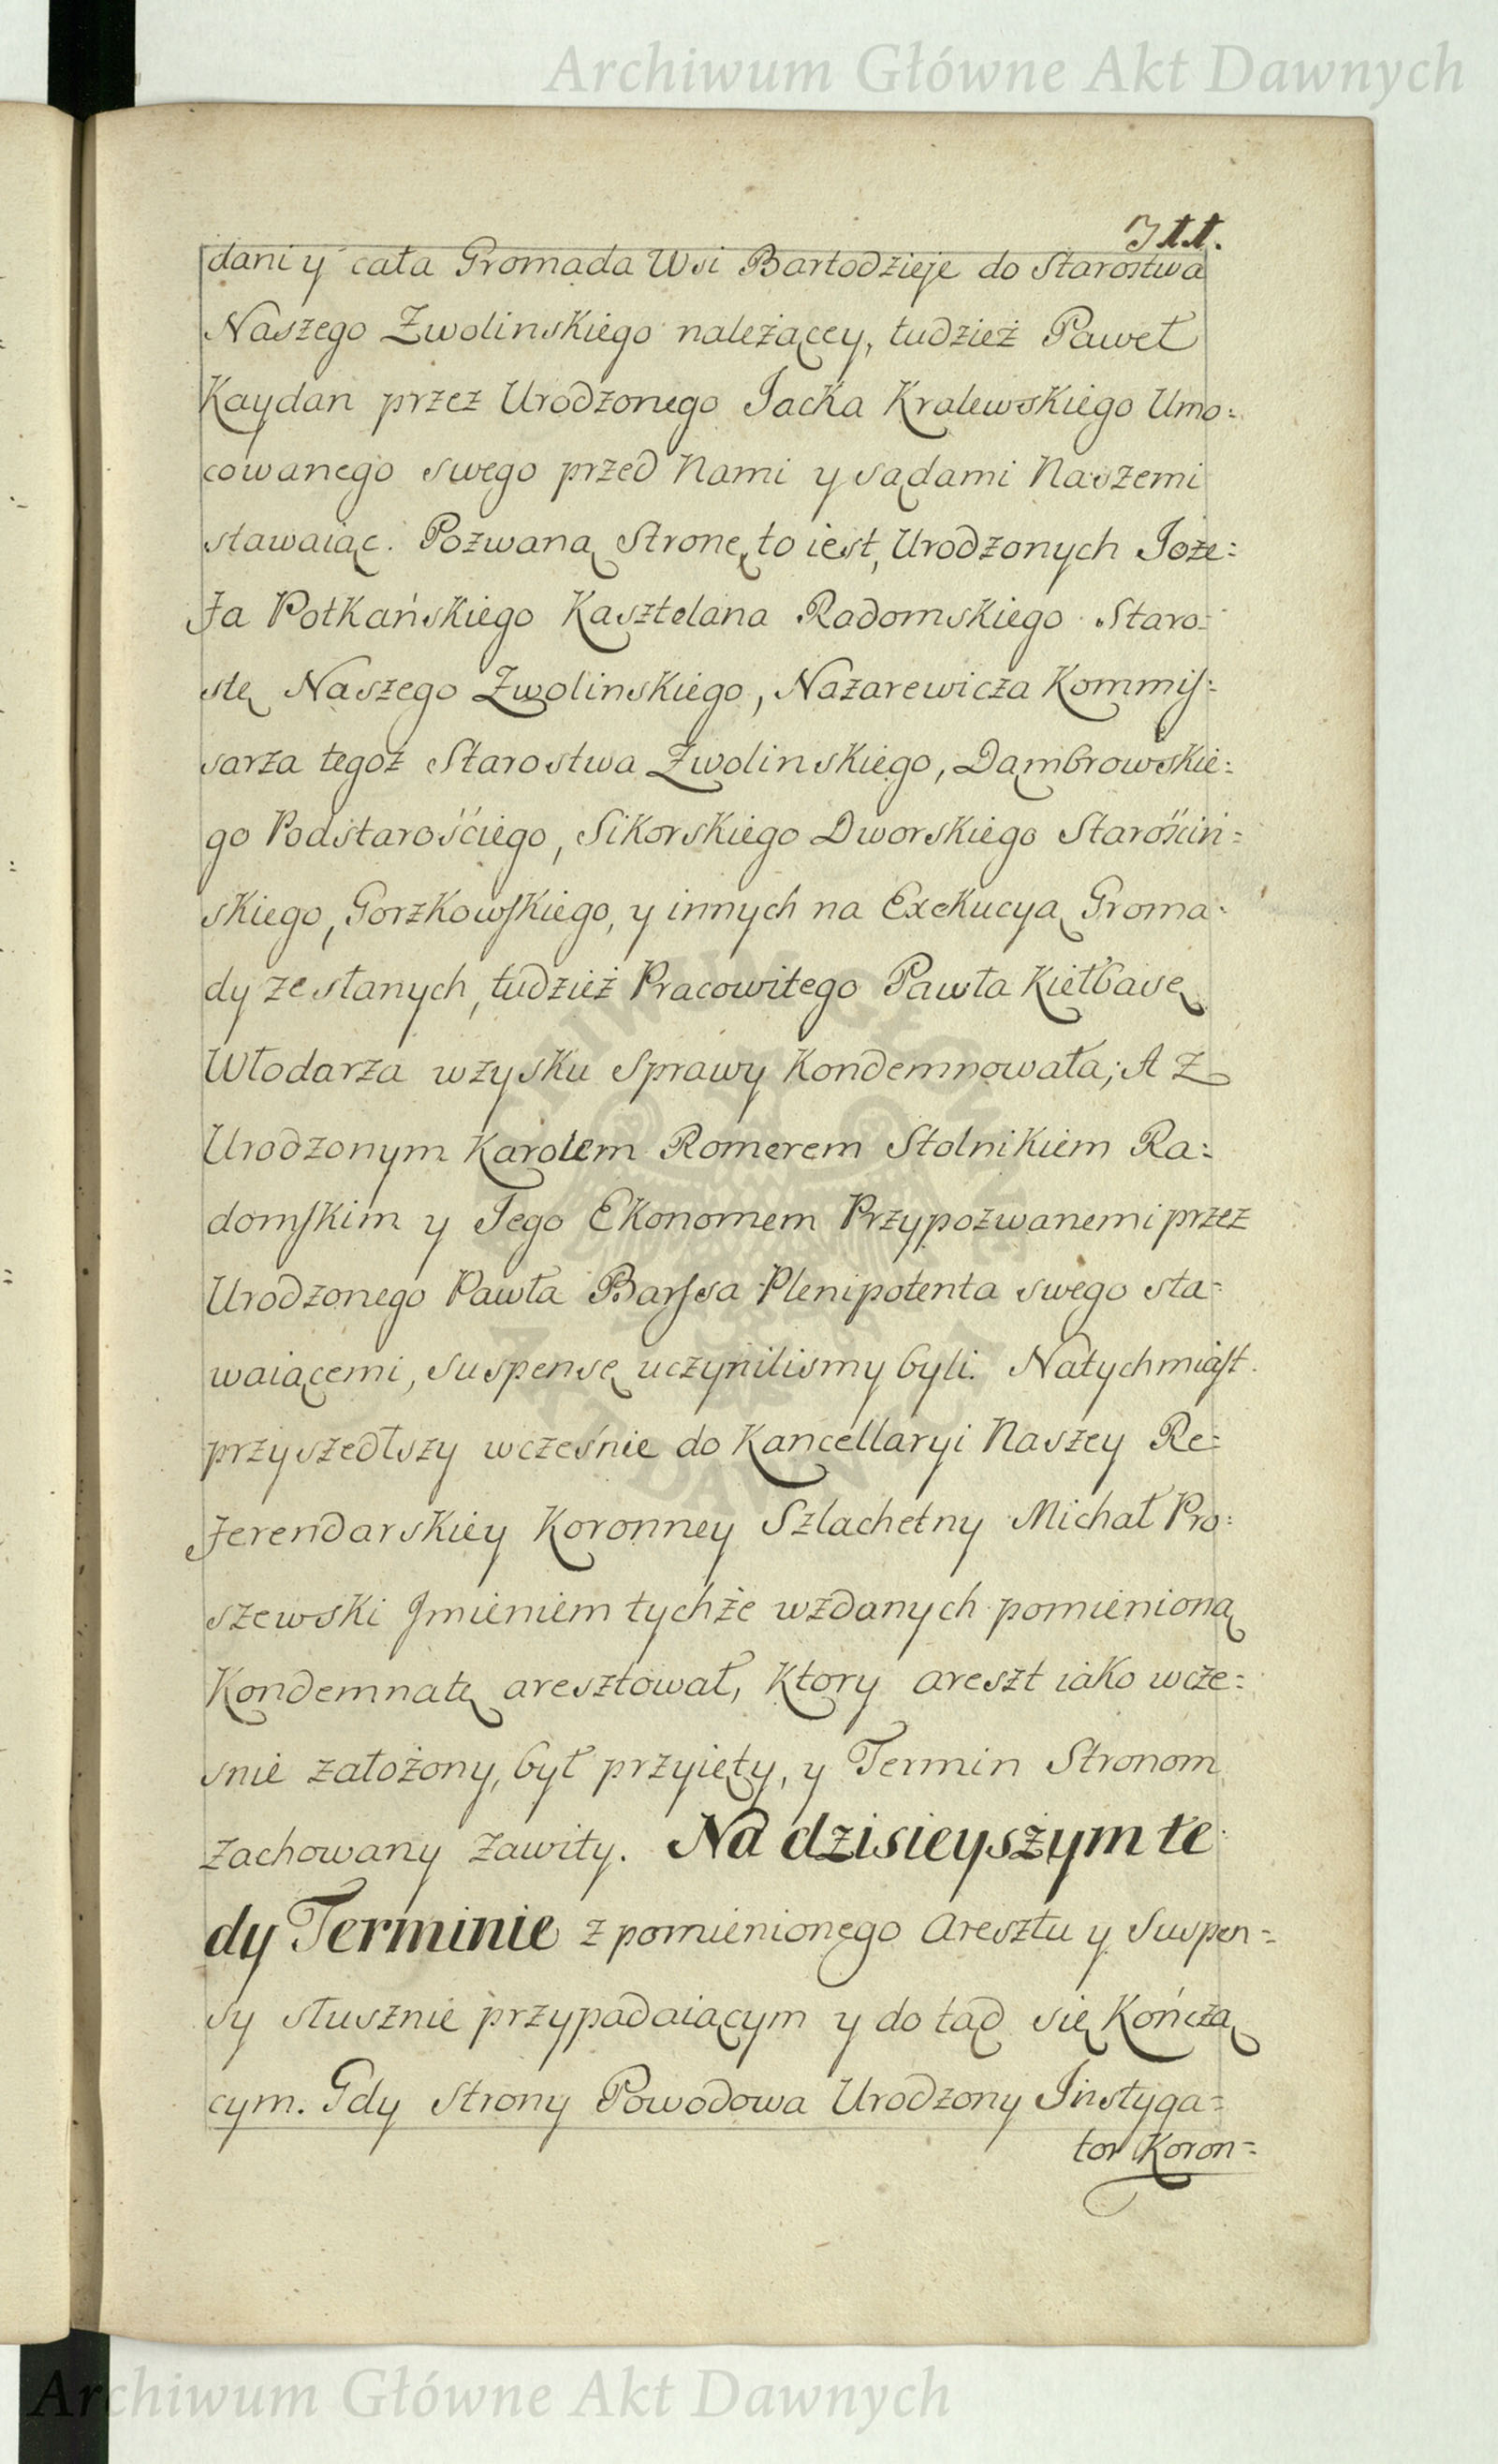 Archiwum Główne Akt Dawnych
dani y cała Gromada Wsi Bartodzieje do Starostwa
Naszego Zwolinskiego należącey, tudzież Paweł
Kaydan przez Urodzonego Jacka Kralewskiego Umo:
cowanego swego przed Nami y sądami Naszemi
stawaiąc. Pozwaną Stronę, to iest, Urodzonych Joze:
fa Potkańskiego Kasztelana Radomskiego Staro:
stę Naszego Zwolinskiego, Nazarewicza Kommis:
sarza tegoż Starostwa Zwolinskiego, Dąmbrowskie:
go Podstarościego, Sikorskiego Dworskiego Starościń:
skiego, Gorzkowskiego, y innych na Exekucyą Groma:
dy zesłanych, tudzież Pracowitego Pawła Kiełbasę
Włodarza wzysku Sprawy Kondemnowała; A Z
Urodzonym Karolem Romerem Stolnikiem Ra:
domskim y Jego Ekonomem Przypozwanemi przez
Urodzonego Pawła Barssa Plenipotenta swego sta:
waiącemi, suspensę uczynilismy byli. Natychmiast
przyszedłszy wcześnie do Kancellaryi Naszey Re:
ferendarskiey Koronney Szlachetny Michał Pro:
szewski Jmieniem tychże wzdanych pomienioną
Kondemnatę aresztował, Ktory areszt iako wcze:
snie założony, był przyięty, y Termin Stronom
zachowany zawity. Na dzisieyszym te
dy Terminie z pomienionego Aresztu y Suspen=
sy słusznie przypadaiącym y do tąd się Kończą
cym. Gdy Strony Powodowa Urodzony Jnstyga=
tor Koron=
ARCHIWUM GŁÓWNE AKT DAWNYCH
Archiwum Główne Akt Dawnych